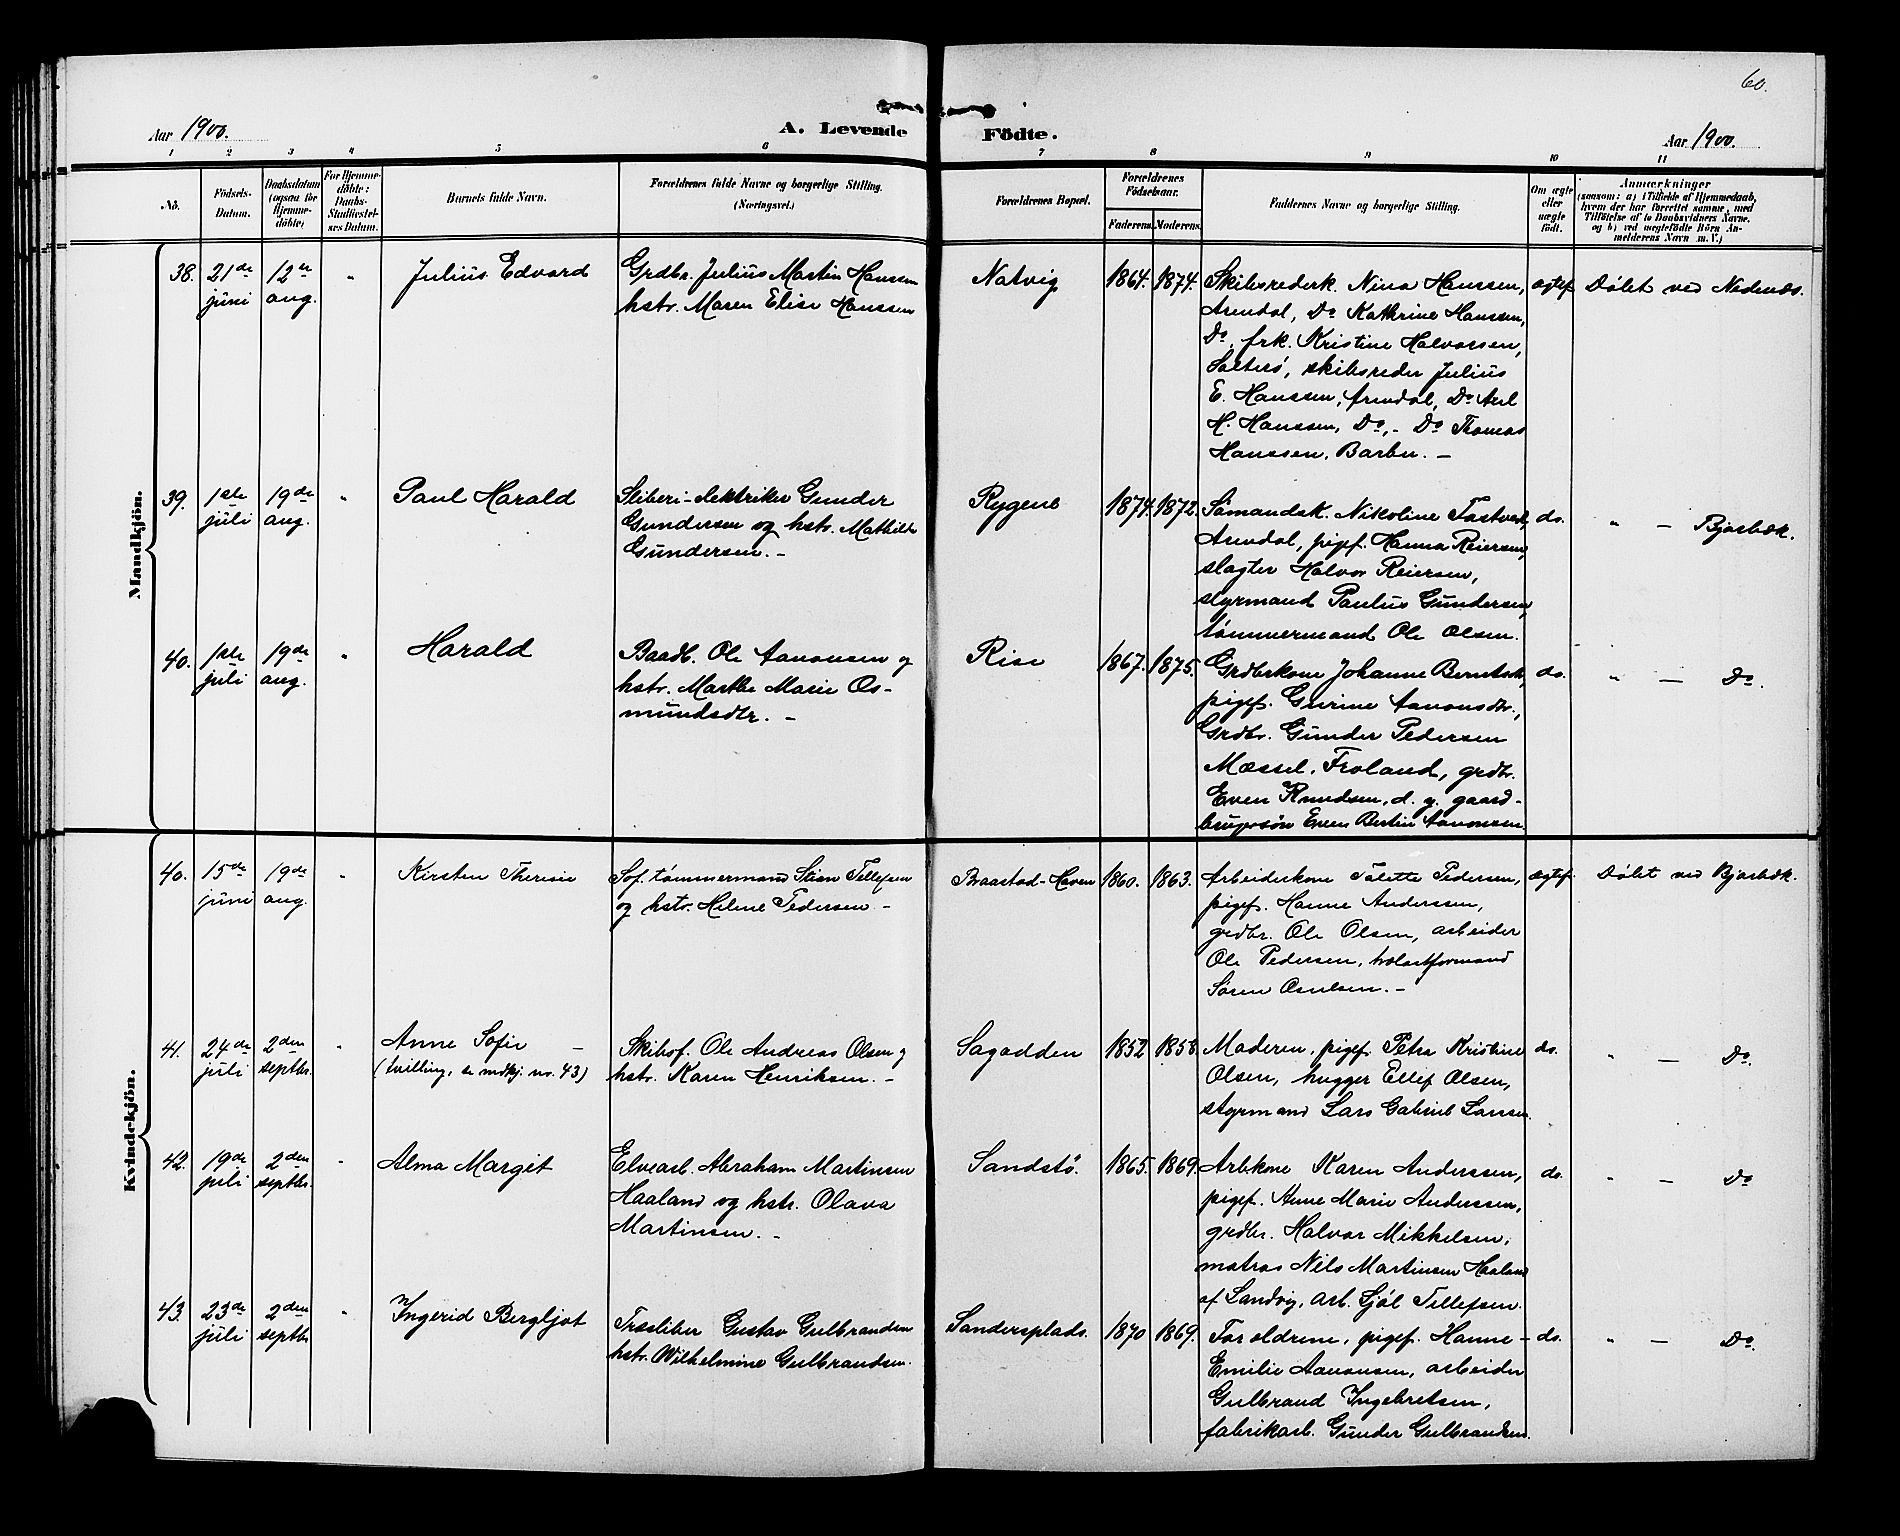 60.
Aar 1900.
A. Levende Födte.
Aar 1900.
1 2 3 4 5 6 7 8 9 10 11
No.
Födsels-Datum.
Daabsdatum (ogsaa for Hjemmedöbte)
For Hjemmedöbte: Daabs-Stadfæstelses Datum.
Barnets fulde Navn.
Forældrenes fulde Navne og borgerlige Stilling. (Næringsvei.)
Forældrenes Bopæl.
Forældrenes Födselsaar.
Faderens. Moderens.
Faddernes Navne og borgerlige Stilling.
Om ægte eller uægte födt.
Anmærkninger
(saasom: a) i Tilfælde af Hjemmedaab, hvem der har forrettet samme, med Tilföielse af to Daabsvidners Navne, og b) ved uægtefödte Börn Anmelderens Navn m. V.)
Mandkjön.
38. 21de juni
12te aug.
"
Julius Edvard
Grdbr. Julius Martin Hanssen
hstr. Maren Elise Hanssen
Natvig
1864. 1874.
Skibsrederk. Nina Hanssen,
Arendal, Do Kathrine Hanssen,
Do, frk. Kristine Halvorsen,
Salterö, skibsreder Julius
E. Hanssen, Arendal, Do Axel
H. Hanssen, Do, - Do Thomas
Hanssen, Barbu. -
ægtef.
Döbt ved Nedenæs.
39. 1ste juli
19de aug.
"
Paul Harald
Sliberi-elektriker Gunder
Gundersen og hstr. Mathilde
Gundersen. -
Rygene
1874. 1872.
Sömandsk. Nikoline Tastved,
Arendal, pigef. Hanna Reiersen,
slagter Halvor Reiersen,
styrmand Paulus Gundersen,
tömmermand Ole Olsen.
do.
" - Bjorbæk.
40. 1ste juli
19de aug.
"
Harald
Baadb. Ole Aanonsen og
hstr. Marthe Marie Os-
mundsdtr. -
Rise
1867. 1875.
Grdbrkone Johanne Berntsdt.,
pigef. Gurine Aanonsdtr.,
Grdbr. Gunder Pedersen
Mæssel, Froland, grdbr.
Even Knudsen, d. y. gaard-
brugersön Even Bertin Aanonsen.
do.
" - Do.
Kvindekjön.
40. 15de juni
19de aug.
"
Kirsten Theresie
Sof. tömmermand Stian Tellefsen
og hstr. Helene Pedersen -
Braastad-Haven
1860. 1863.
Arbeiderkone Tolette Pedersen,
pigef. Hanne Anderssen,
grdbr. Ole Olsen, arbeider
Ole Pedersen, holastformand
Sören Osulsen. -
ægtef.
Döbt ved Bjorbæk.
41. 24de juli
2den septbr.
"
Anne Sofie -
(tvilling, se mdkj. nr. 43)
Skibsf. Ole Andreas Olsen og
hstr. Karen Henriksen. -
Sagadden
1852 1858.
Moderen, pigef. Petra Kristine
Olsen, hugger Ellef Olsen,
styrmand Lars Gabriel Larsen.
do.
" - Do.
42. 19de juli
2den septbr.
"
Alma Margit
Elvearb. Abraham Martinsen
Haaland og hstr. Olava
Martinsen. -
Sandstö.
1865. 1869.
Arbkone Karen Anderssen,
pigef. Anne Marie Anderssen,
grdbr. Halvor Mikkelsen,
matros Nils Martinsen Haaland
af Landvig, arb. Sjöl Tellefsen.
do.
" - Do
43. 23de juli
2den septbr.
"
Ingerid Bergljot
Træsliber Gustav Gulbrandsen
hstr. Wilhelmine Gulbrandsen.
Sandersplads.
1870 1869.
Foröldrene, pigef. Hanne -
Emilie Aanonsen, arbeider
Gulbrand Ingebretsen,
fabrikarb. Gunder Gulbrandsen.
do.
" - Do.